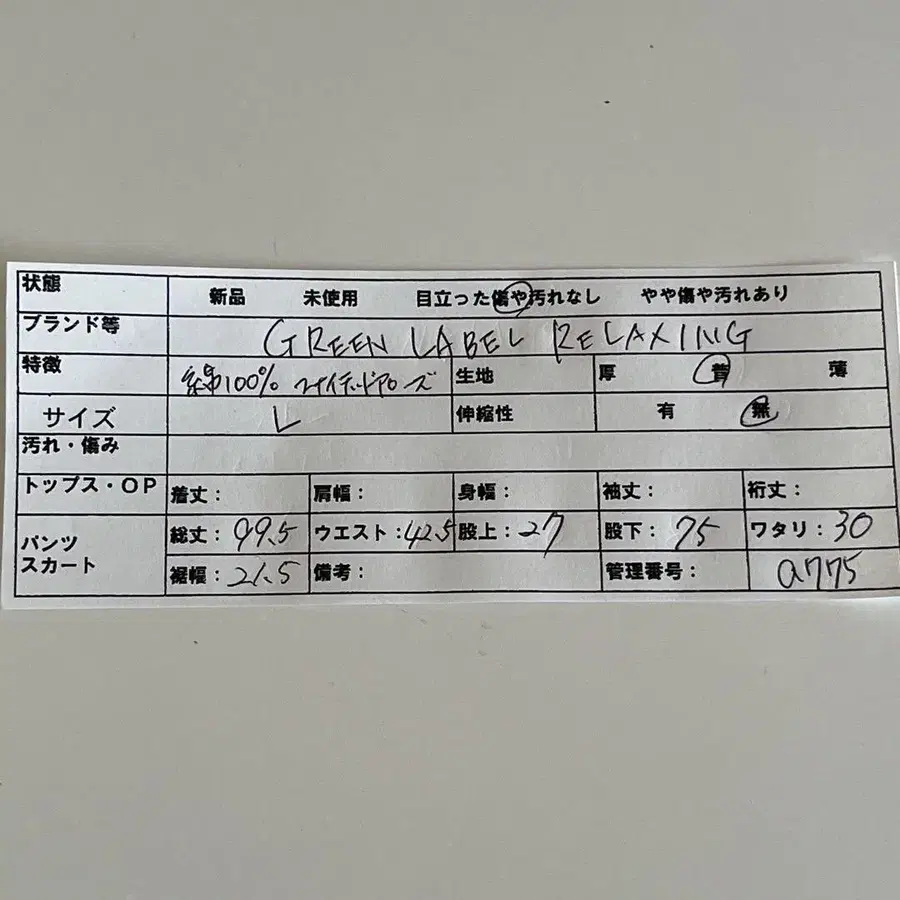 状態 新品 未使用 目立った傷や汚れなし やや傷や汚れあり
ブランド等 GREEN LABEL RELAXING
特徴 綿100% ユナイテッドアローズ 生地 厚 普 薄
サイズ L 伸縮性 有 無
汚れ・傷み
トップス・OP 着丈: 肩幅: 身幅: 袖丈: 裄丈:
パンツ スカート 総丈:99.5 ウエスト:42.5 股上:27 股下:75 ワタリ:30
裾幅:21.5 備考: 管理番号: a775